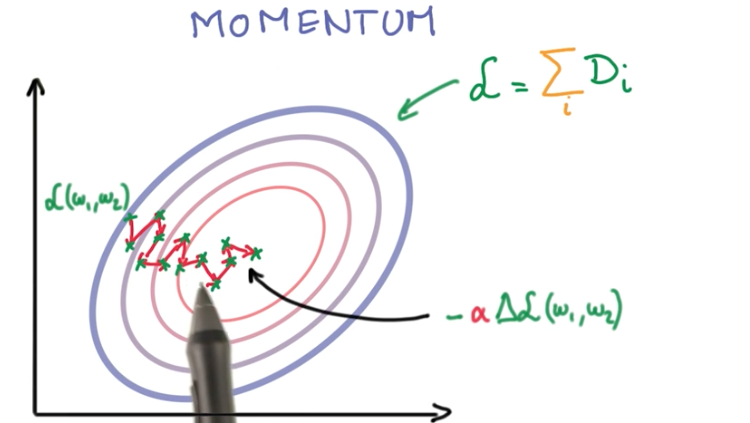 MOMENTUM
ℒ = Σᵢ Dᵢ
ℒ(ω₁,ω₂)
-αΔℒ(ω₁,ω₂)